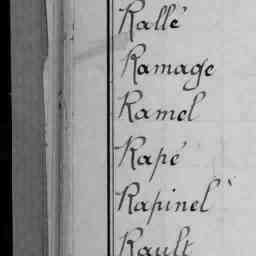 Rallé
Ramage
Ramel
Rapé
Rapinel
Rault